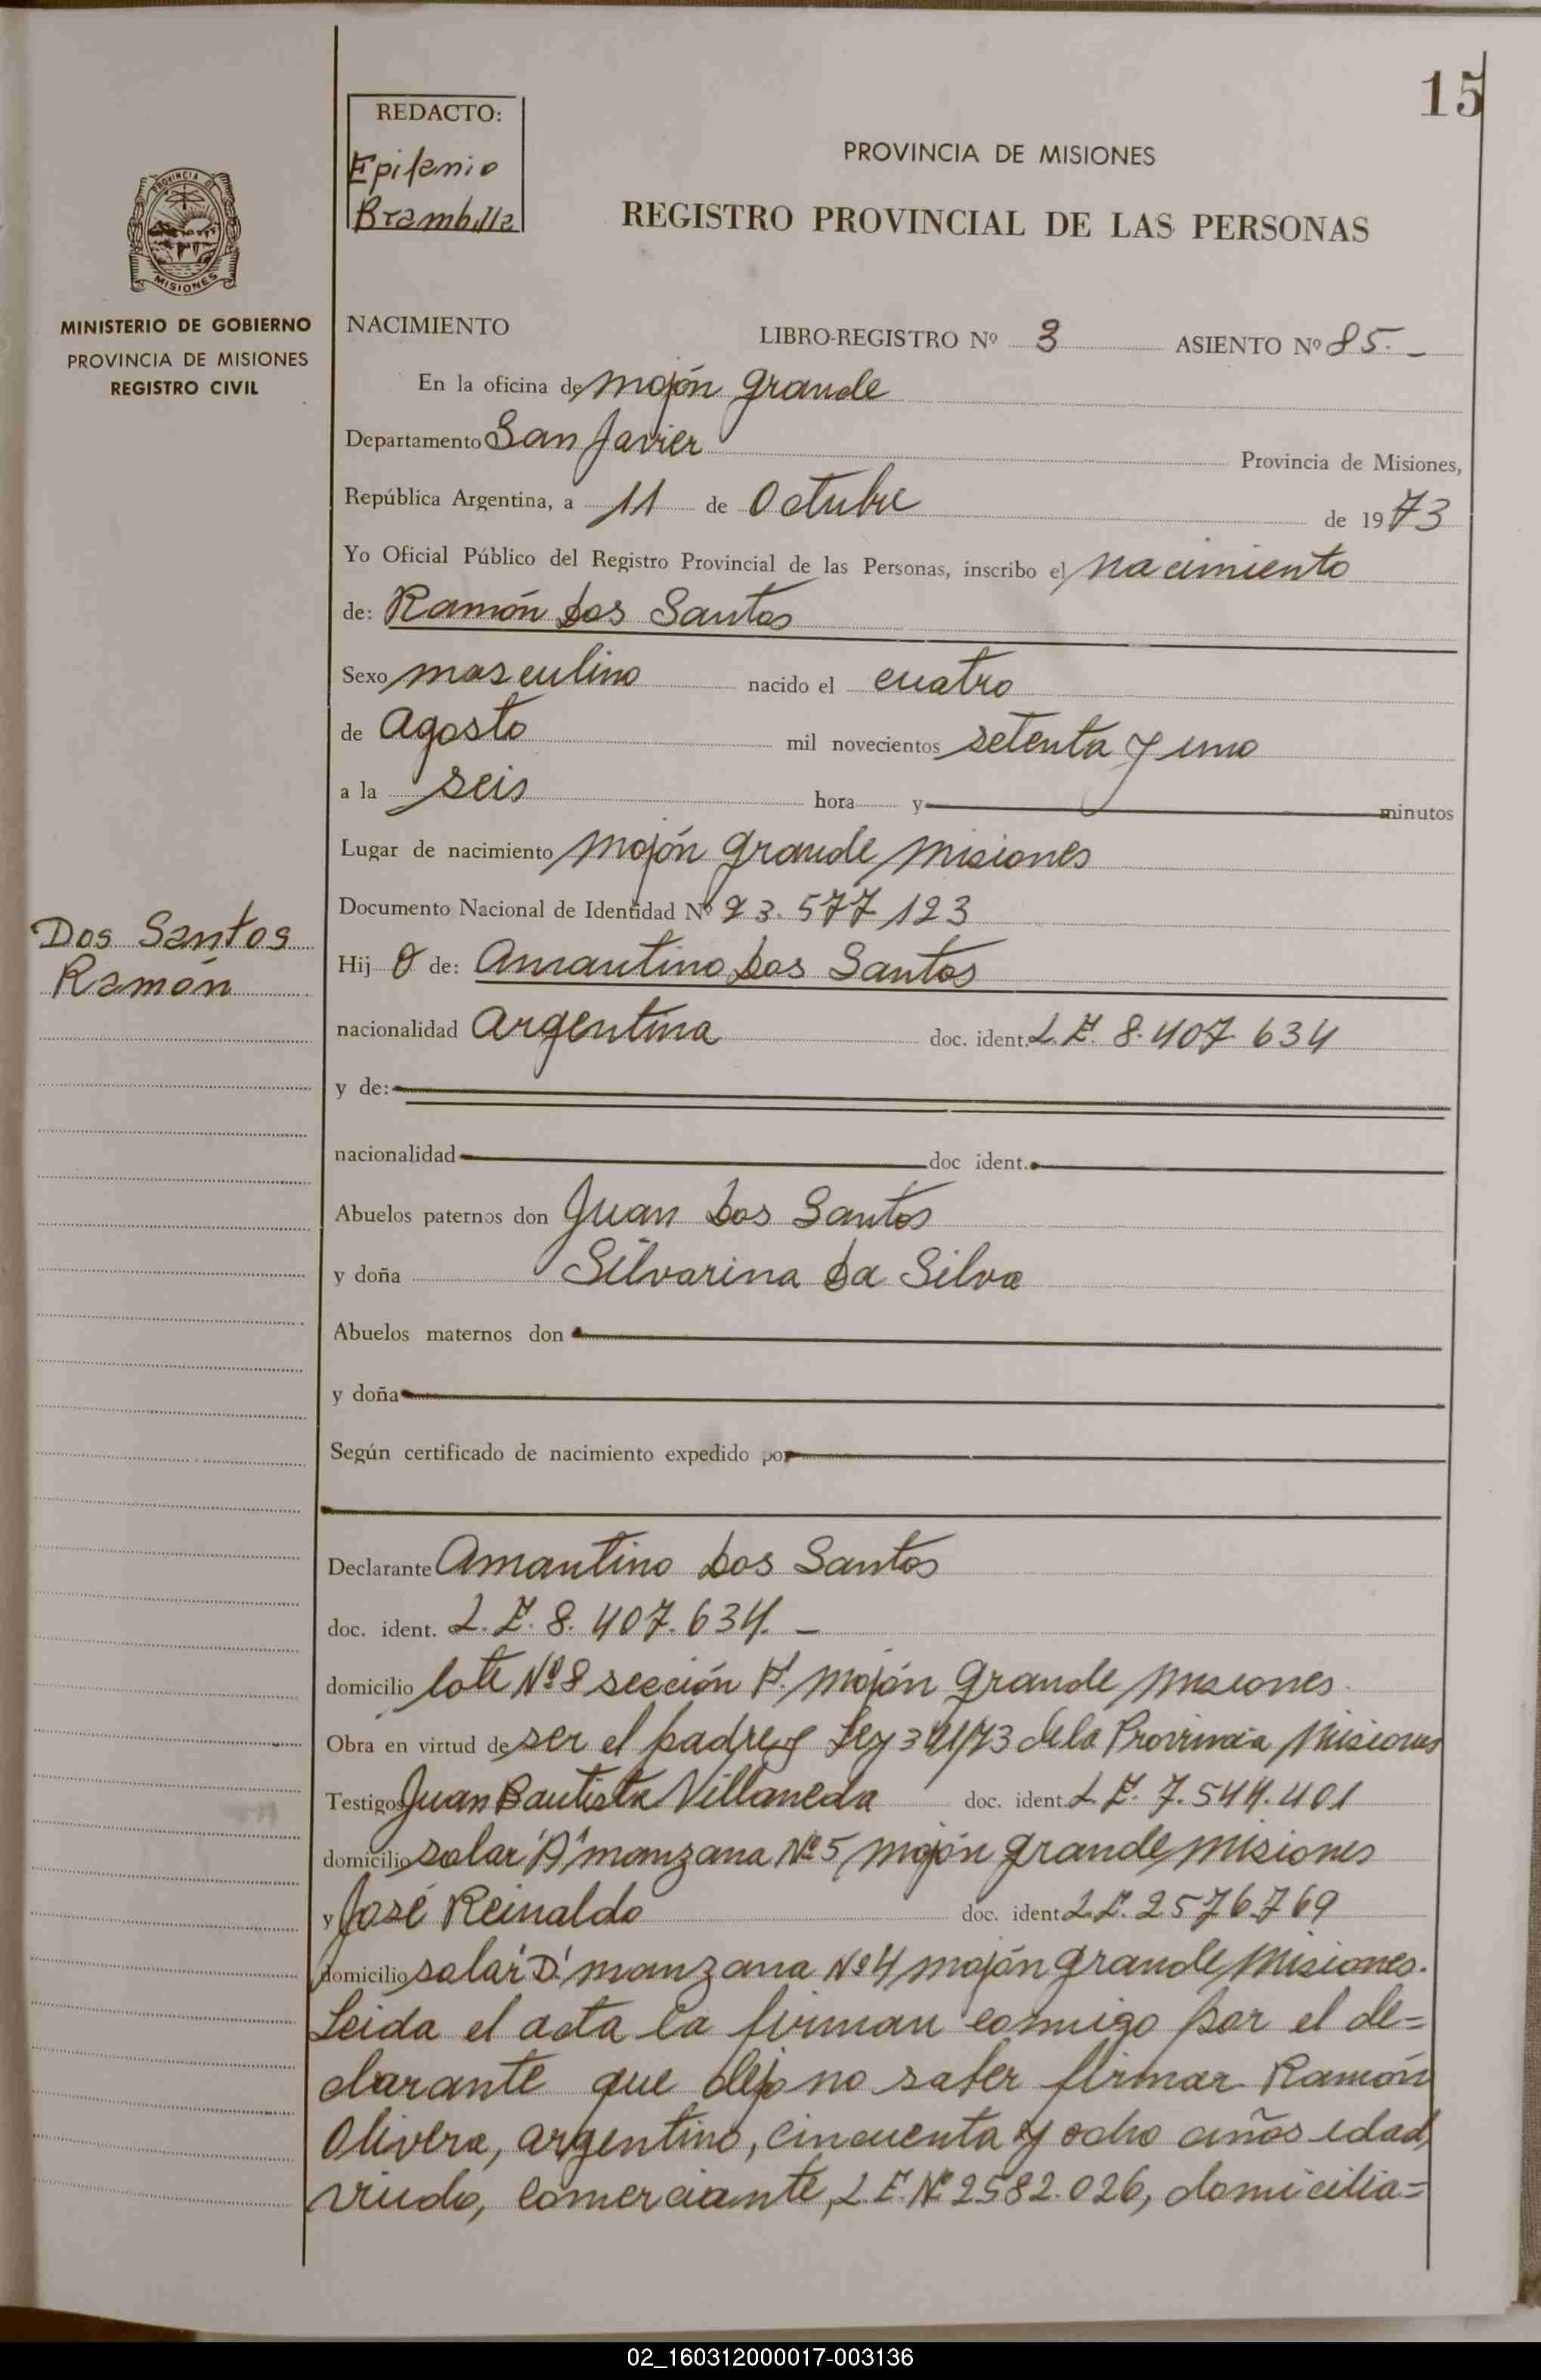 15
REDACTO:
Epifanio
Brambilla
PROVINCIA DE MISIONES
REGISTRO PROVINCIAL DE LAS PERSONAS
PROVINCIA DE
MISIONES
MINISTERIO DE GOBIERNO
PROVINCIA DE MISIONES
REGISTRO CIVIL
NACIMIENTO LIBRO-REGISTRO Nº 3 ASIENTO Nº 85.-
En la oficina de Mojón Grande
Departamento San Javier Provincia de Misiones,
República Argentina, a 11 de Octubre de 1973
Yo Oficial Público del Registro Provincial de las Personas, inscribo el nacimiento
de: Ramón Dos Santos
Sexo masculino nacido el cuatro
de Agosto mil novecientos setenta y uno
a la seis hora y minutos
Lugar de nacimiento Mojón Grande Misiones
Documento Nacional de Identidad Nº 23.577.123
Dos Santos
Ramón
Hij o de: Amantino Dos Santos
nacionalidad Argentina doc. ident. L.E. 8.407.634
y de:
nacionalidad doc ident.
Abuelos paternos don Juan Dos Santos
y doña Silvarina Da Silva
Abuelos maternos don
y doña
Según certificado de nacimiento expedido por
Declarante Amantino Dos Santos
doc. ident. L.E. 8.407.634.-
domicilio lote Nº 8 sección Mojón Grande Misiones
Obra en virtud de ser el padre y Ley /73 de la Provincia Misiones
Testigos Juan Bautista Villaneda doc. ident L.E. 7.544.401
domicilio solar "A" manzana Nº 5 Mojón Grande Misiones
y José Reinaldo doc. ident L.E. 2576.769
domicilio solar "D" manzana Nº 4 Mojón Grande Misiones.
Leida el acta la firman conmigo por el de=
clarante que dejo no saber firmar Ramón
Olivera, argentino, cincuenta y ocho años edad,
viudo, comerciante, L.E. Nº 2582.026, domicilia=
02_160312000017-003136